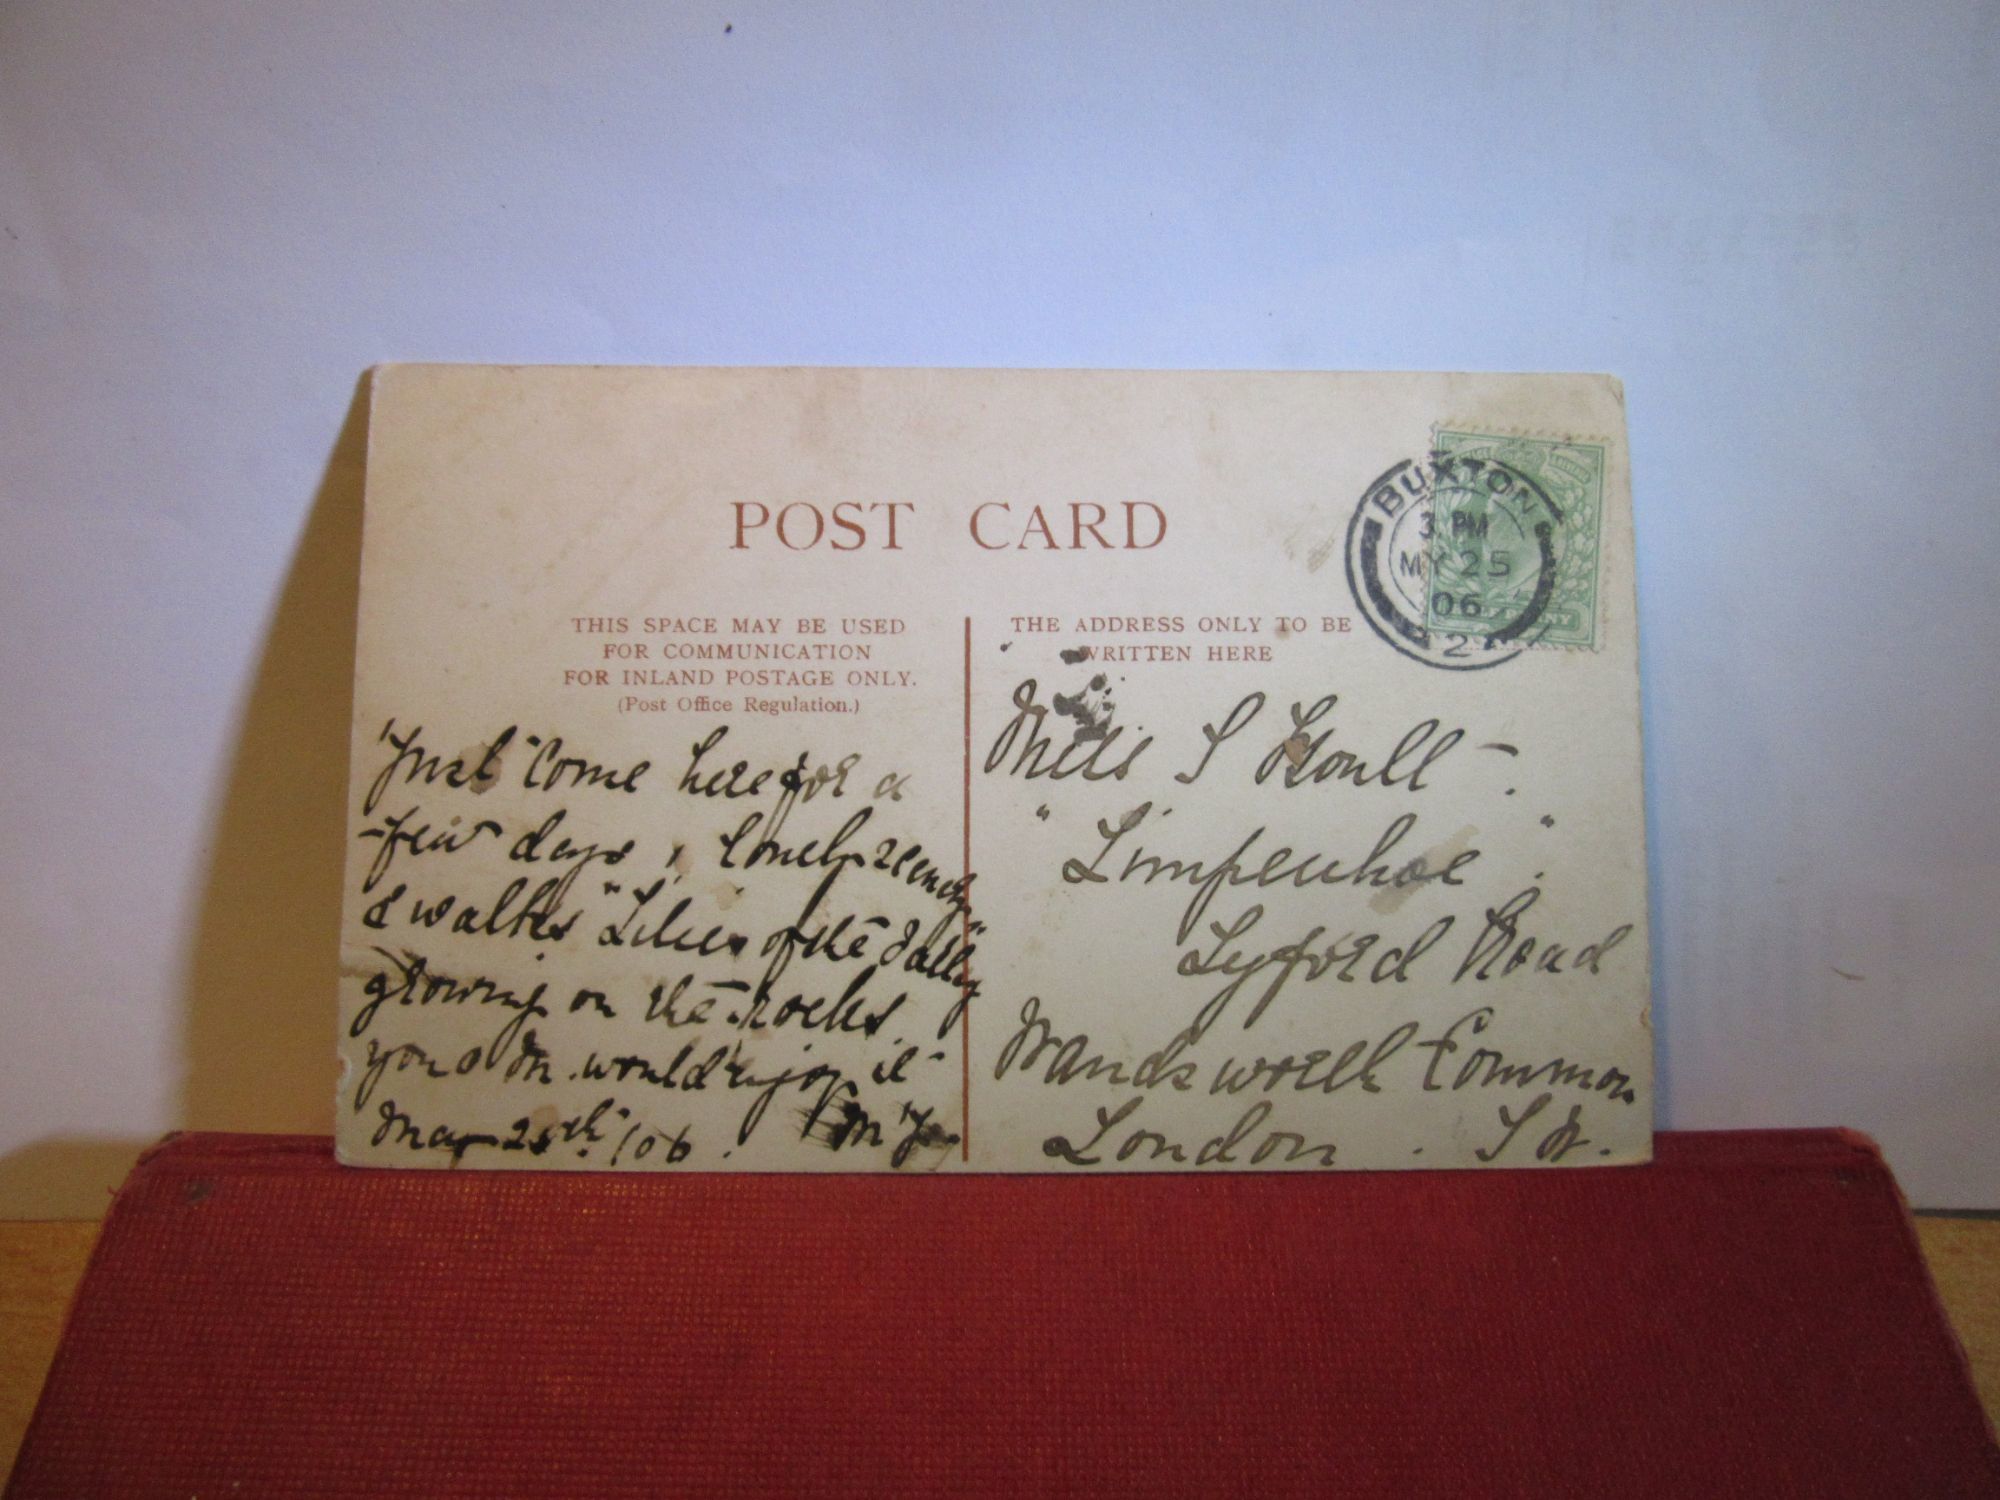 POST CARD
THIS SPACE MAY BE USED
FOR COMMUNICATION
FOR INLAND POSTAGE ONLY.
(Post Office Regulation.)
THE ADDRESS ONLY TO BE
WRITTEN HERE
BUXTON
3 PM
MY 25
06
2
Just come here for a
few days, lovely scenery
& walks "Lilies of the Valley"
growing on the rocks
you & M. would enjoy it
May 25th /06. M
Miss S Goull
"Limpenhoe"
Lyford Road
Wandsworth Common
London. SW.